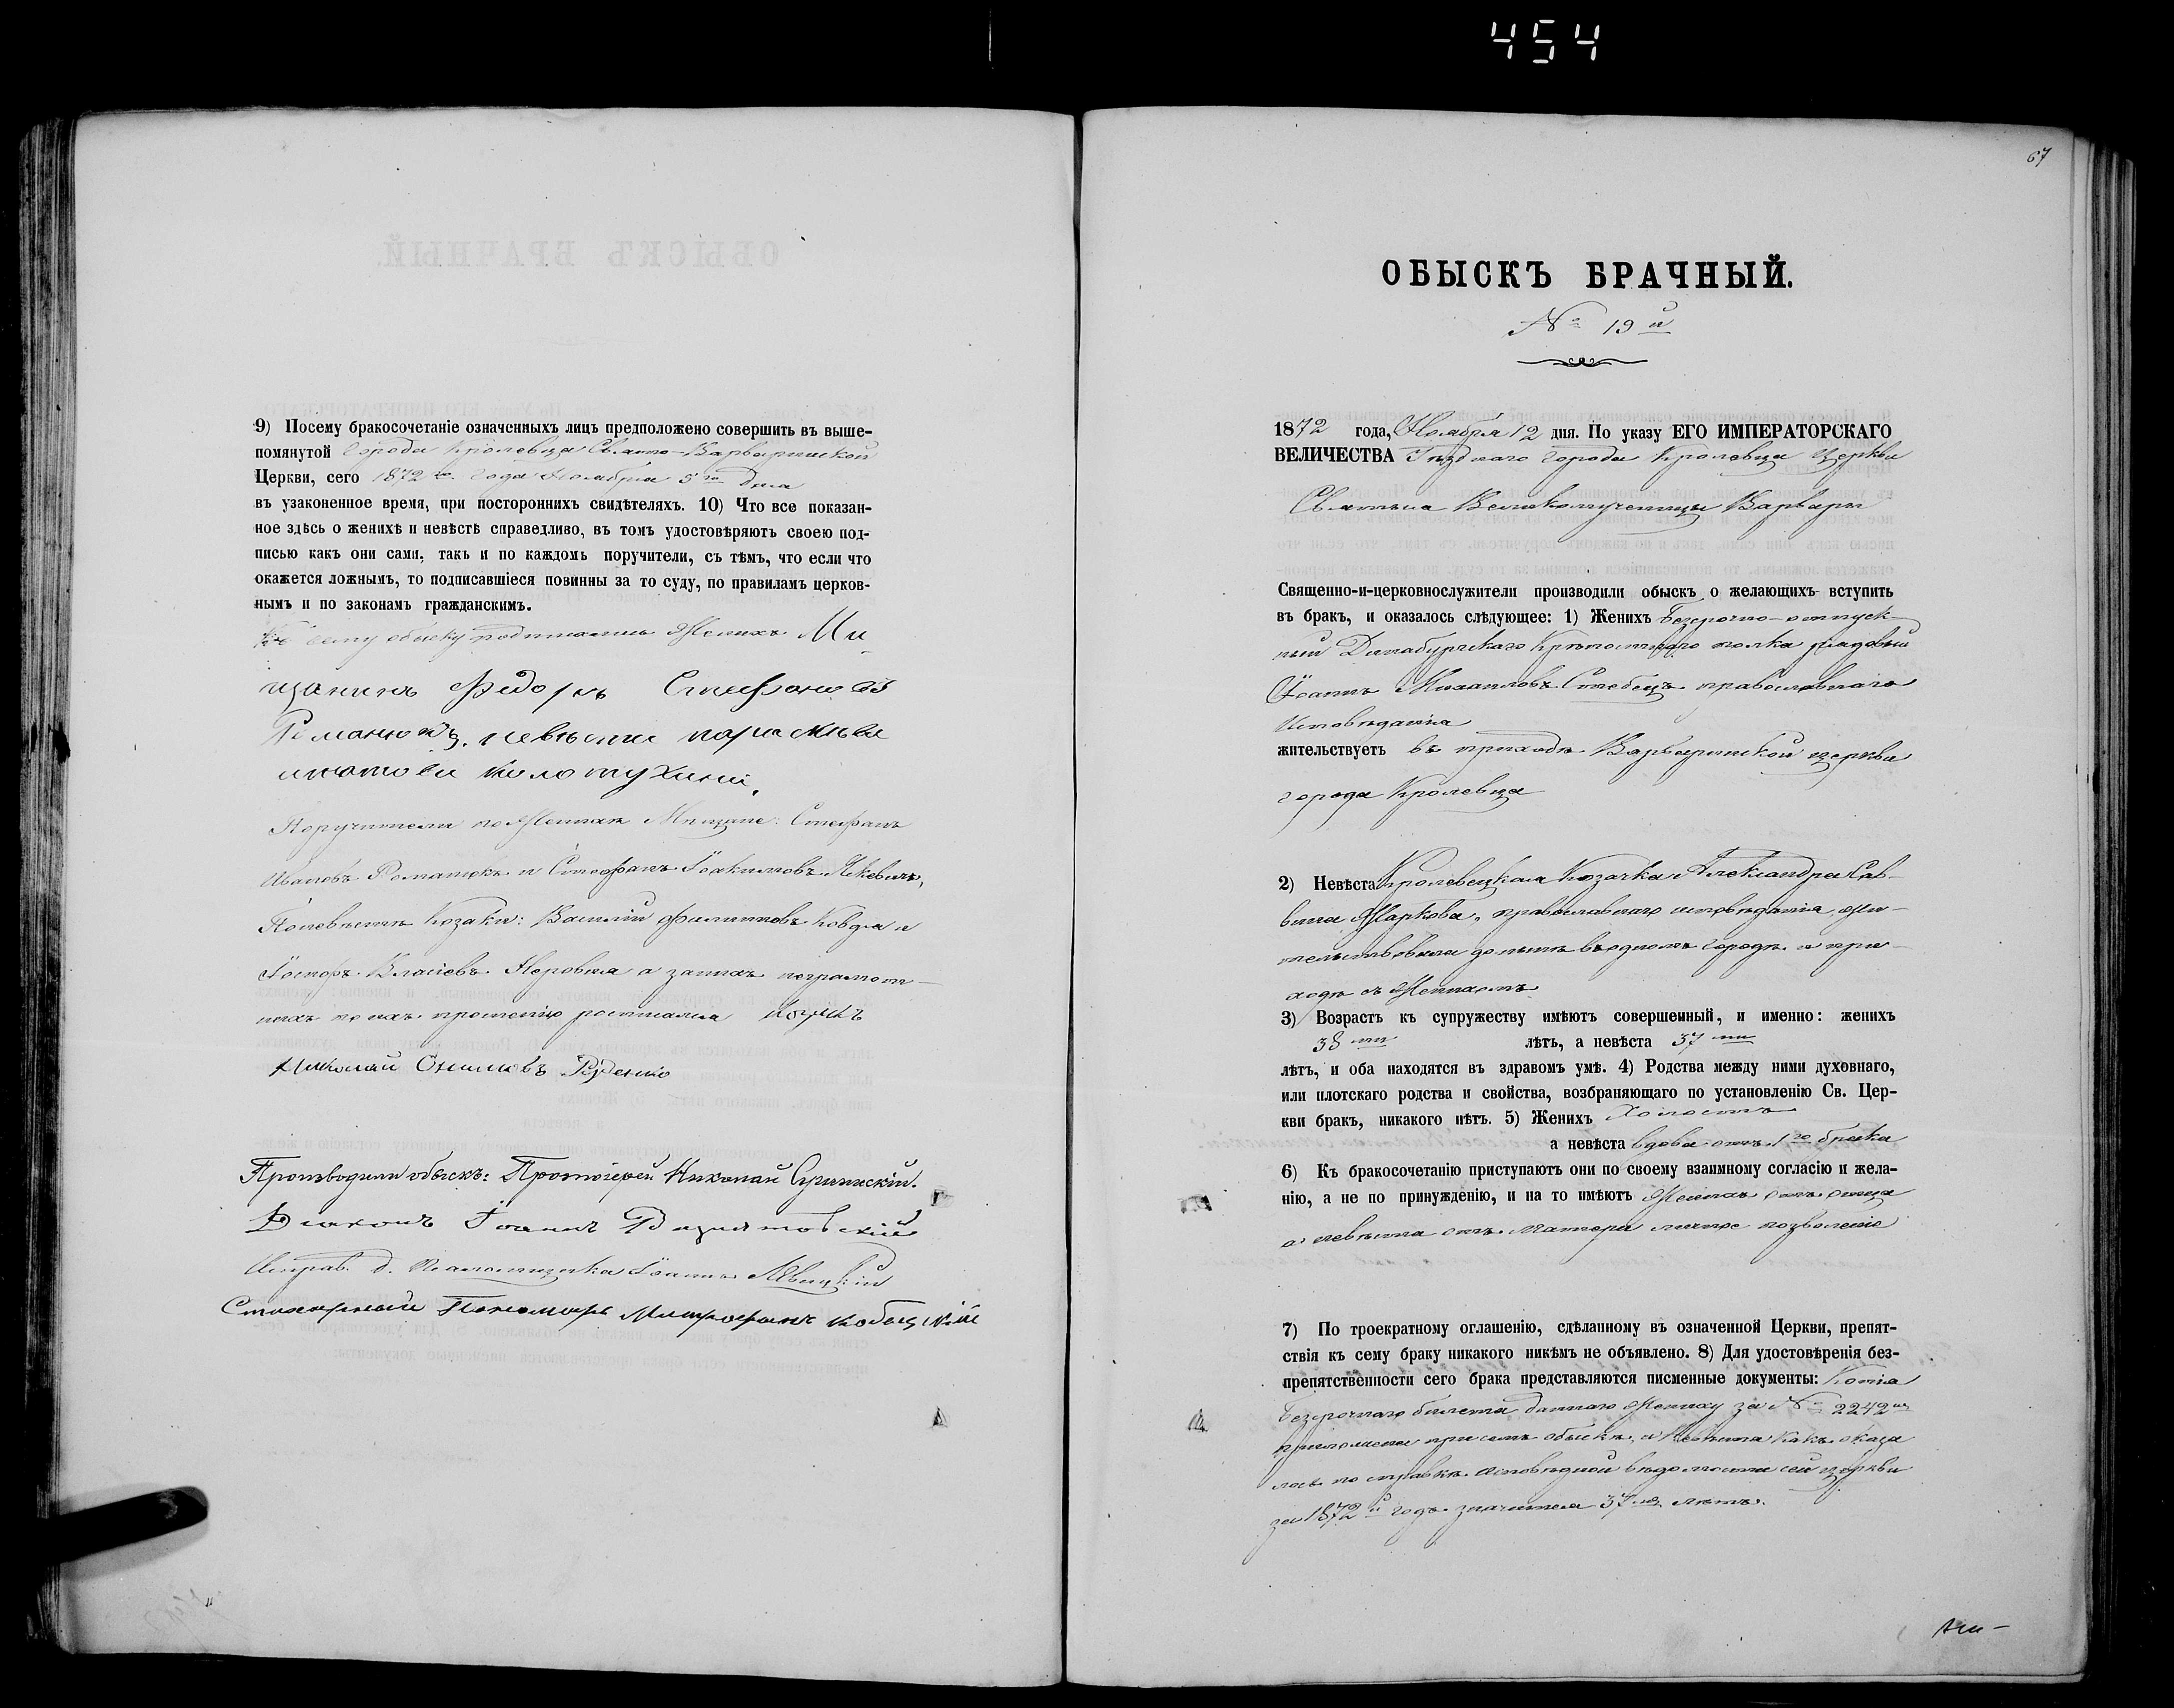 454
9) Посему бракосочетаніе означенныхъ лицъ предположено совершить въ выше-
помянутой города Кролевца Свято-Варваринской
Церкви, сего 1872го года Ноября 5го дня
въ узаконенное время, при постороннихъ свидѣтеляхъ. 10) Что все показан-
ное здѣсь о женихѣ и невѣстѣ справедливо, въ томъ удостовѣряютъ своею под-
писью какъ они сами, такъ и по каждомъ поручители, съ тѣмъ, что если что
окажется ложнымъ, то подписавшіеся повинны за то суду, по правиламъ церков-
нымъ и по законамъ гражданскимъ.
Къ сему обыску подписались Женихъ Ми-
щанинъ Федоръ Стефановъ
Романюкъ, невѣста параскѣва
колотухина.
Поручители по Женихѣ Мѣщане: Стефанъ
Ивановъ Романюкъ и Стефанъ Іоакимовъ
По невѣстѣ Козаки: Василій Филиповъ Ковдя и
Власіевъ а за нихъ неграмот-
ныхъ по ихъ прошенію росписался
Николай Руденко
Производили обыскъ: Протоіерей Николай
Діаконъ Іоаннъ
Исправ. д. Псаломщика Іоаннъ
Пономарь Митрофанъ
67
ОБЫСКЪ БРАЧНЫЙ.
№ 19й
1872 года, Ноября 12 дня. По указу ЕГО ИМПЕРАТОРСКАГО
ВЕЛИЧЕСТВА Уѣзднаго города Кролевца Церкви
Святыя Великомученицы Варвары
Священно-и-церковнослужители производили обыскъ о желающихъ вступить
въ бракъ, и оказалось слѣдующее: 1) Женихъ Безсрочно-отпуск-
ный Динабургскаго Крѣпостнаго полка рядовый
Іоаннъ Михаиловъ Стебецъ православнаго
Исповѣданія
жительствуетъ въ приходѣ Варваринской церкви
города Кролевца
2) Невѣста Кролевецкая Козачка Александра Сав-
вина Жаркова, православнаго исповѣданія, жи-
тельствовала донынѣ въ одномъ городѣ и при-
ходѣ съ Женихомъ
3) Возрастъ къ супружеству имѣютъ совершенный, и именно: женихъ
38ми лѣтъ, а невѣста 37ми
лѣтъ, и оба находятся въ здравомъ умѣ. 4) Родства между ними духовнаго,
или плотскаго родства и свойства, возбраняющаго по установленію Св. Цер-
кви бракъ, никакого нѣтъ. 5) Женихъ Холостъ
а невѣста вдова отъ 1го брака
6) Къ бракосочетанію приступаютъ они по своему взаимному согласію и жела-
нію, а не по принужденію, и на то имѣютъ Женихъ отъ отца
а невѣста отъ матери личное позволеніе
7) По троекратному оглашенію, сдѣланному въ означенной Церкви, препят-
ствія къ сему браку никакого никѣмъ не объявлено. 8) Для удостовѣренія без-
препятственности сего брака представляются писменные документы: Копія
Безсрочнаго билета даннаго Жениху за № 2242мъ
приложена при семъ обыскѣ, а Невѣста какъ оказа
лось по справкѣ исповѣдной вѣдомости сей церкви
за 1872й годъ значится 37ми лѣтъ.